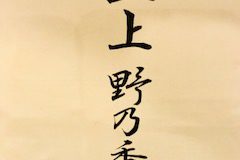 上野乃香